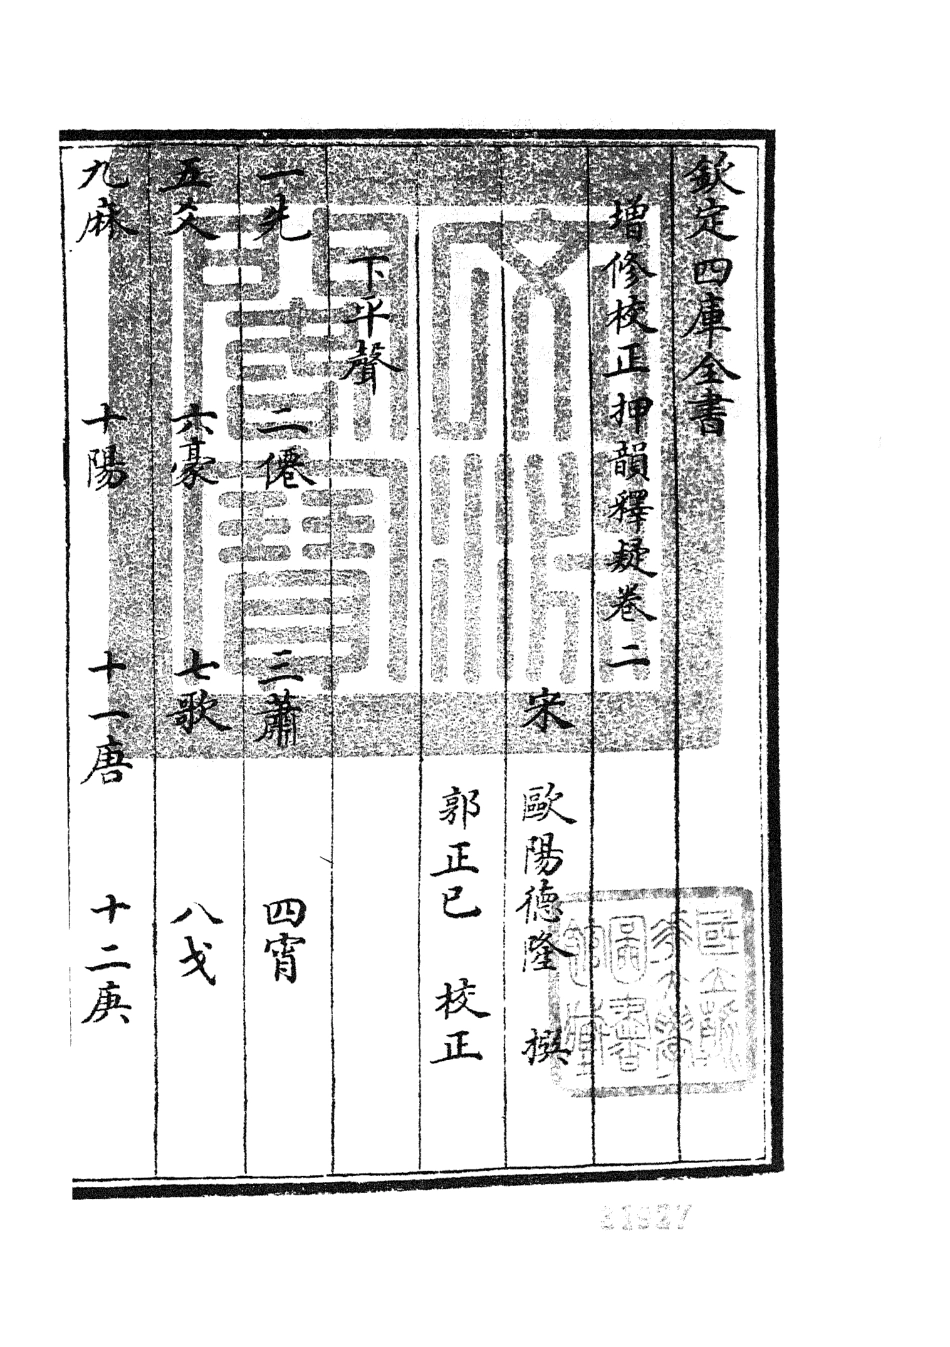 欽定四庫全書
增修校正押韻釋疑卷二
宋 歐陽德隆 撰
郭正已 校正
下平聲
一先 二僊 三蕭 四宵
五爻 六豪 七歌 八戈
九麻 十陽 十一唐 十二庚
文淵閣寶